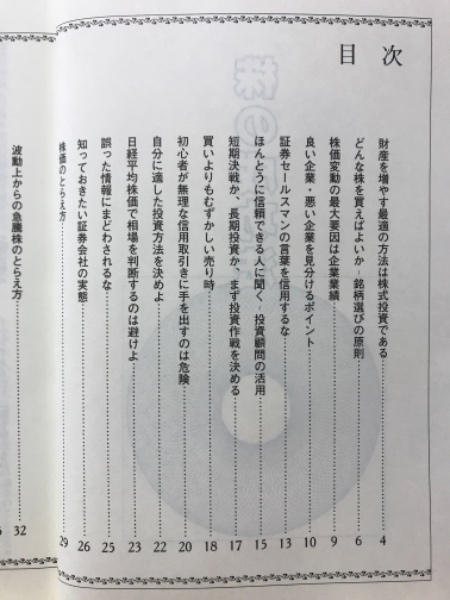 目次
財産を増やす最適の方法は株式投資である……4
どんな株を買えばよいか–銘柄選びの原則……6
株価変動の最大要因は企業業績……9
良い企業・悪い企業を見分けるポイント……10
証券セールスマンの言葉を信用するな……13
ほんとうに信頼できる人に聞く–投資顧問の活用……15
短期決戦か、長期投資か、まず投資作戦を決める……17
買いよりもむずかしい売り時……18
初心者が無理な信用取引きに手を出すのは危険……20
自分に適した投資方法を決めよ……22
日経平均株価で相場を判断するのは避けよ……23
誤った情報にまどわされるな……25
知っておきたい証券会社の実態……26
株価のとらえ方……29
波動上からの急騰株のとらえ方……32